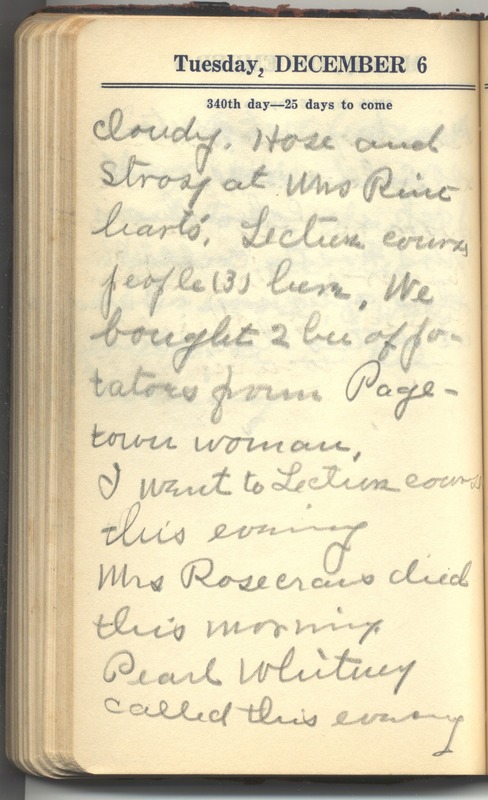 Tuesday, DECEMBER 6
340th day—25 days to come
Cloudy. Hose and
at Mrs Rine
harts. Lecture course
people (3) here, We
bought 2 bu of po-
tatoes from Page-
town woman,
I went to Lecture course
this evening
Mrs Rosecrans died
this morning
Pearl Whitney
called this evening